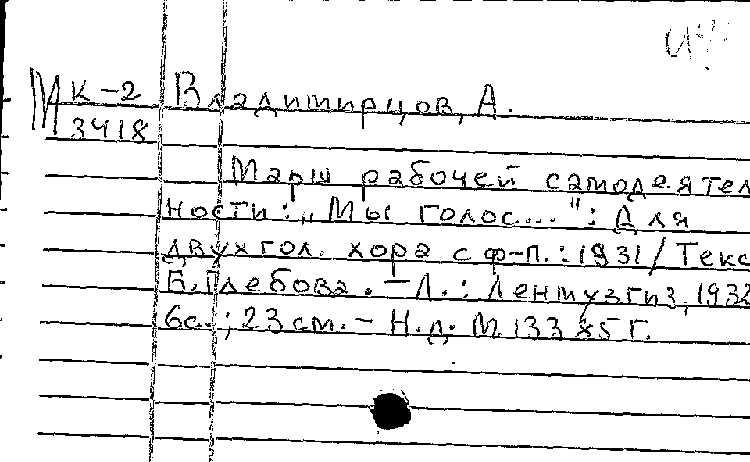 М К-2 Владимирцов, А.
3418
Марш рабочей самодеятел
ности: „Мы голос...": Для
двухгол. хора с ф-п.: 1931/ Текс
Б. Глебова. - Л.: Ленмузгиз, 1932
6с.; 23 см. - Н.д. М 13385 Г.